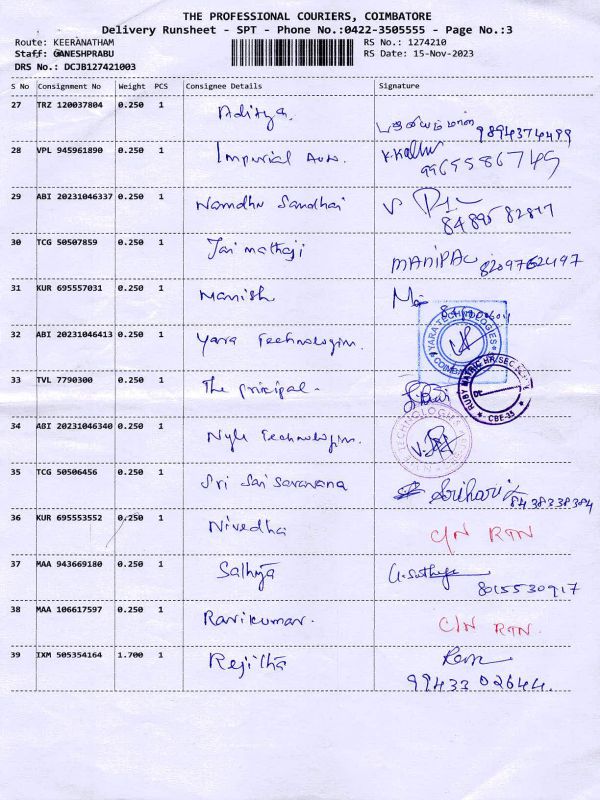 THE PROFESSIONAL COURIERS, COIMBATORE
Delivery Runsheet - SPT - Phone No.:0422-3505555 - Page No.:3
Route: KEERANATHAM RS No.: 1274210
Staff: GANESHPRABU RS Date: 15-Nov-2023
DRS No.: DCJB127421003
S No Consignment No Weight PCS Consignee Details Signature
27 TRZ 120037804 0.250 1 Aditya.
9894374499
28 VPL 945961890 0.250 1 Imperial Auto.
9965586749
29 ABI 20231046337 0.250 1 Namdhu Sandhai
30 TCG 50507859 0.250 1 Jai mathaji MANIPAL 8209762497
31 KUR 695557031 0.250 1 Manish
32 ABI 20231046413 0.250 1 Yara Technologim. YARA TECHNOLOGIES
COIMBATORE
33 TVL 7790300 0.250 1 The pricipal. RUBY MATRIC HR SEC
CBE-35
34 ABI 20231046340 0.250 1 Nyle Technologim. TECHNOLOGIES
35 TCG 50506456 0.250 1 Sri Sai Saravana Srihari
8438338384
36 KUR 695553552 0.250 1 Nivedha C/N RTN
37 MAA 943669180 0.250 1 Sathya G. Sathya
8015530917
38 MAA 106617597 0.250 1 Ravikumar. C/N RTN.
39 IXM 505354164 1.700 1 Rejitha
99433 02644.